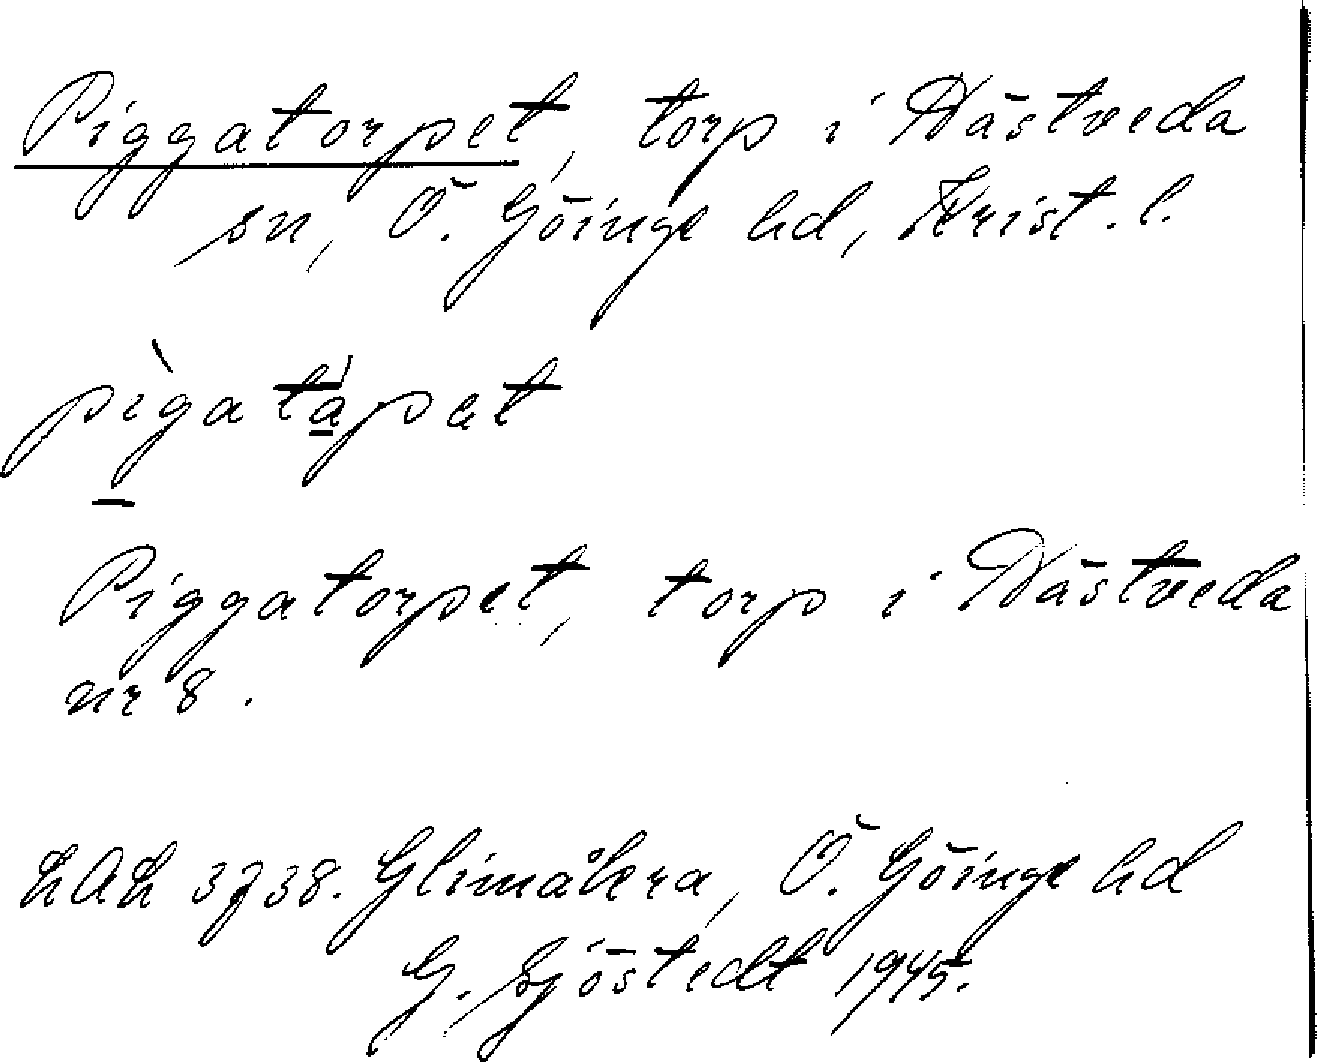 Piggatorpet, torp i Hästveda
sn, Ö. Göinge hd, Krist. l.
pìgatápat
Piggatorpet, torp i Hästveda
nr 8.
LAL 3738. Glimåkra, Ö. Göinge hd
G. Sjöstedt 1945.